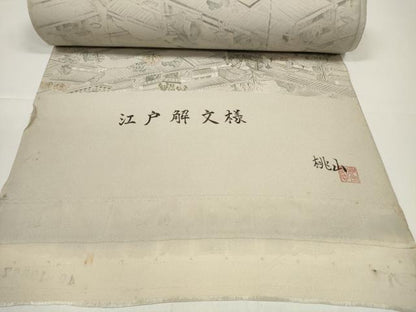 江戸解文様
桃山